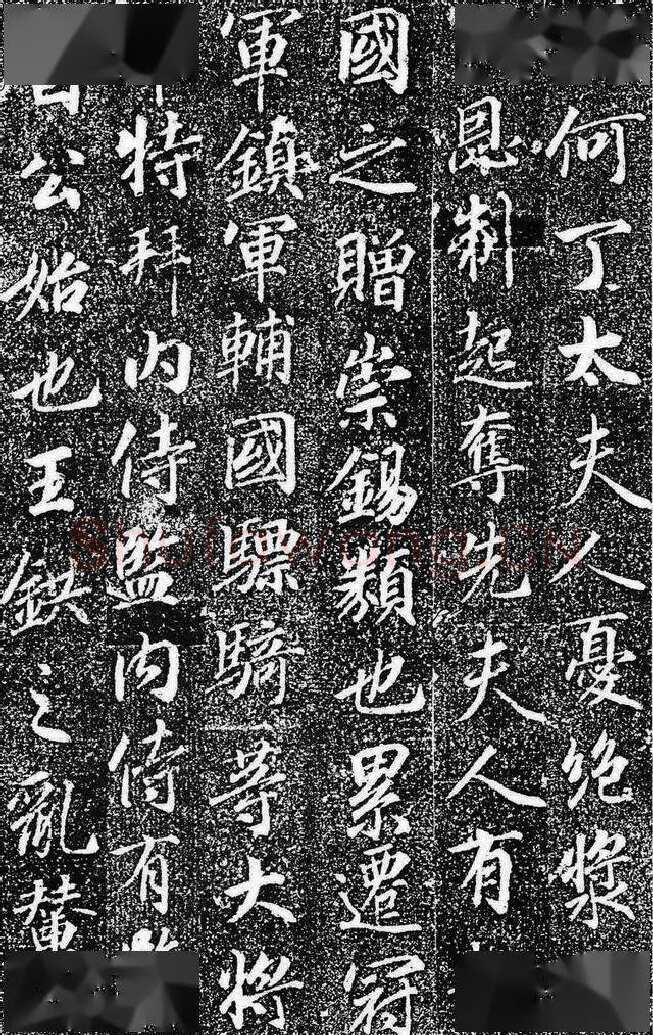 何丁太夫人憂絶漿
恩制起奪先夫人有
國之贈崇錫類也累遷冠
軍鎮軍輔國驃騎等大將
特拜内侍監内侍有
公始也王鉷之亂輦
Shufawang.CN